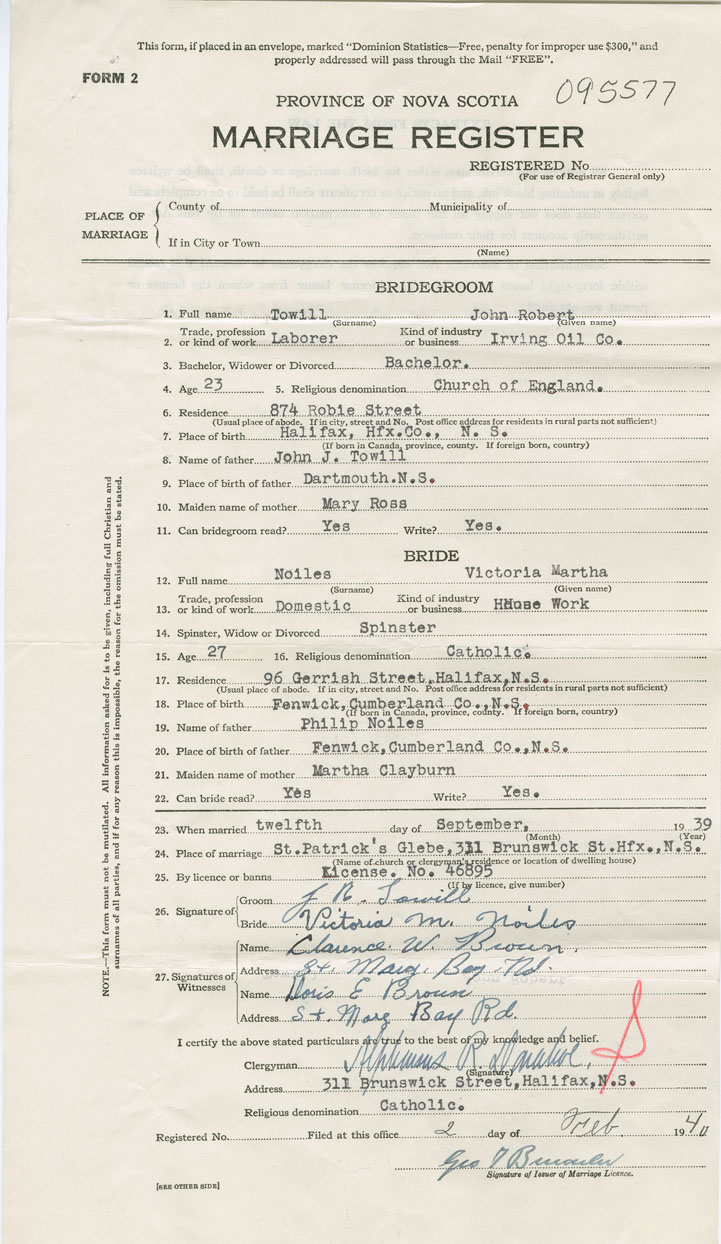 This form, if placed in an envelope, marked "Dominion Statistics—Free, penalty for improper use $300," and
properly addressed will pass through the Mail "FREE".
FORM 2
095577
PROVINCE OF NOVA SCOTIA
MARRIAGE REGISTER
REGISTERED No.
(For use of Registrar General only)
PLACE OF MARRIAGE
County of Municipality of
If in City or Town
(Name)
BRIDEGROOM
1. Full name Towill John Robert
(Surname) (Given name)
2. Trade, profession or kind of work Laborer Kind of industry or business Irving Oil Co.
3. Bachelor, Widower or Divorced Bachelor.
4. Age 23 5. Religious denomination Church of England.
6. Residence 874 Robie Street
(Usual place of abode. If in city, street and No. Post office address for residents in rural parts not sufficient)
7. Place of birth Halifax, Hfx.Co., N. S.
(If born in Canada, province, county. If foreign born, country)
8. Name of father John J. Towill
9. Place of birth of father Dartmouth.N.S.
10. Maiden name of mother Mary Ross
11. Can bridegroom read? Yes Write? Yes.
BRIDE
12. Full name Noiles Victoria Martha
(Surname) (Given name)
13. Trade, profession or kind of work Domestic Kind of industry or business House Work
14. Spinster, Widow or Divorced Spinster
15. Age 27 16. Religious denomination Catholic.
17. Residence 96 Gerrish Street,Halifax,N.S.
(Usual place of abode. If in city, street and No. Post office address for residents in rural parts not sufficient)
18. Place of birth Fenwick,Cumberland Co.,N.S.
(If born in Canada, province, county. If foreign born, country)
19. Name of father Philip Noiles
20. Place of birth of father Fenwick,Cumberland Co.,N.S.
21. Maiden name of mother Martha Clayburn
22. Can bride read? Yes Write? Yes.
23. When married twelfth day of September, 1939
(Month) (Year)
24. Place of marriage St.Patrick's Glebe,311 Brunswick St.Hfx.,N.S.
(Name of church or clergyman's residence or location of dwelling house)
25. By licence or banns License. No. 46895
(If by licence, give number)
26. Signature of
Groom J R. Towill
Bride Victoria M. Noiles
27. Signatures of Witnesses
Name Clarence W. Brown.
Address St. Marg. Bay Rd.
Name Doris E Brown
Address St. Marg Bay Rd.
I certify the above stated particulars are true to the best of my knowledge and belief.
Clergyman Alphonsus R. Donahoe.
(Signature)
Address 311 Brunswick Street,Halifax,N.S.
Religious denomination Catholic.
Registered No. Filed at this office 2 day of Feb 1940
Geo
Signature of Issuer of Marriage Licence.
[SEE OTHER SIDE]
NOTE.—This form must not be mutilated. All information asked for is to be given, including full Christian and
surnames of all parties, and if for any reason this is impossible, the reason for the omission must be stated.